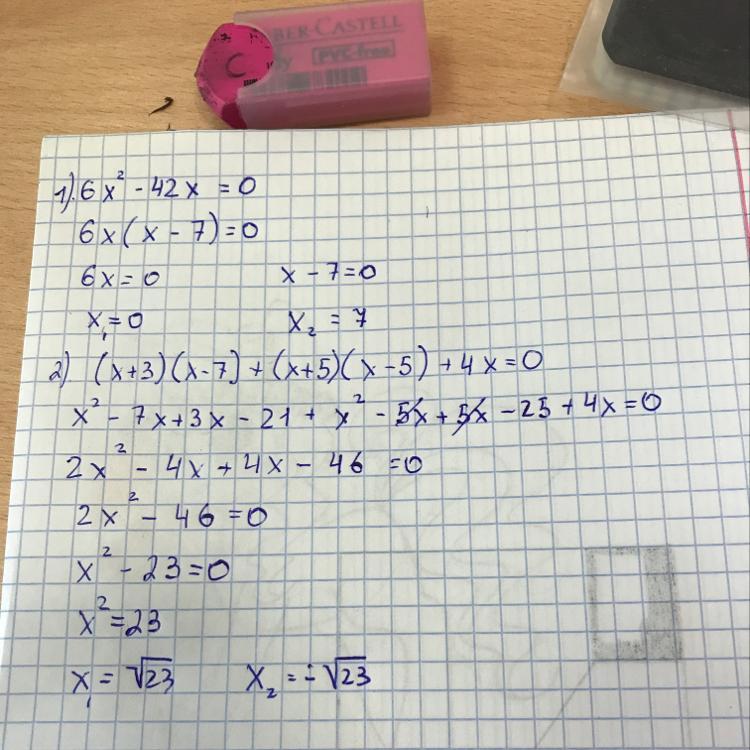 BER-CASTELL
PVC-free
C
1). 6x² - 42x = 0
6x(x - 7) = 0
6x = 0 x - 7 = 0
x₁ = 0 x₂ = 7
2). (x+3)(x-7) + (x+5)(x-5) + 4x = 0
x² - 7x + 3x - 21 + x² - 5x + 5x - 25 + 4x = 0
2x² - 4x + 4x - 46 = 0
2x² - 46 = 0
x² - 23 = 0
x² = 23
x₁ = √23 x₂ = -√23